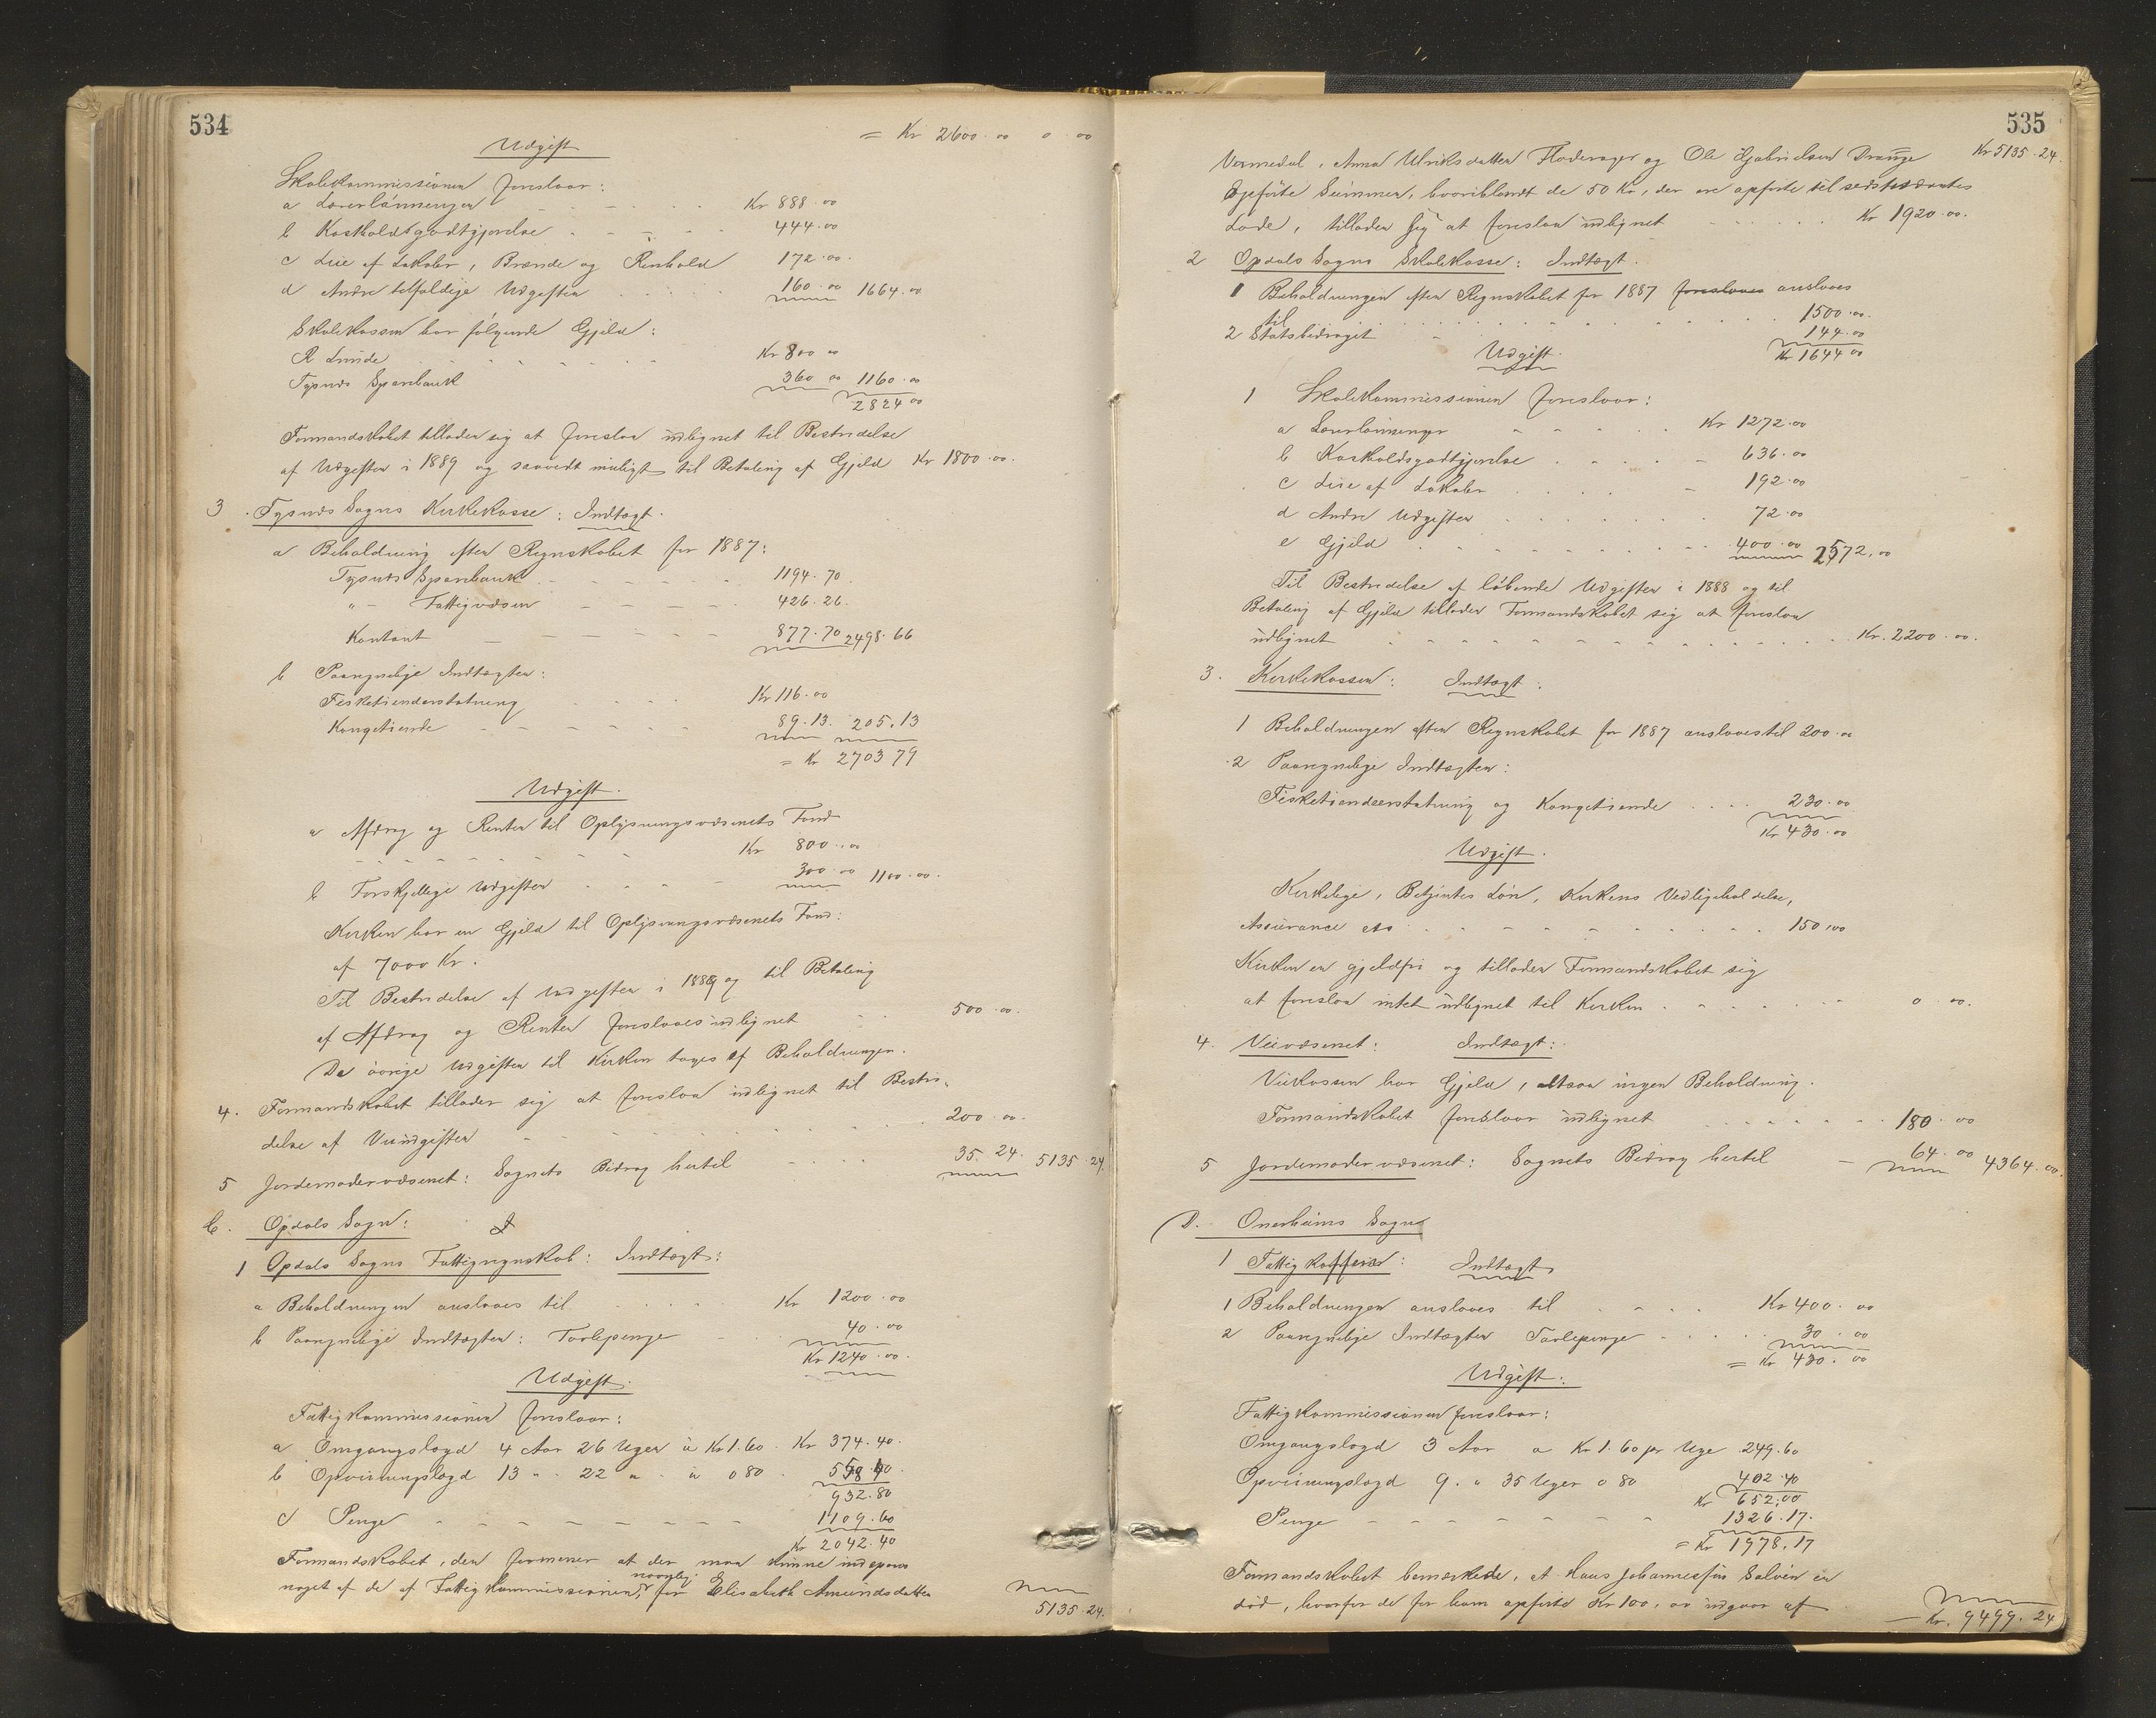 534
= Kr 2600.00 0.00
Udgift
Skolekommissionen foreslaar:
a Lærerlønninger Kr 888.00
b Kostholdsgodtgjørelse 444.00
c Leie af Lokaler, Brænde og Renhold 172.00
d Andre tilfældige Udgifter 160.00 1664.00
Skolekassen har følgende Gjeld:
R Lunde Kr 800 00
Tysnes Sparebank 360 00 1160.00
2824 00
Formandskabet tillader sig at foreslaa udlignet til Bestridelse
af Udgifter i 1889 og saavidt muligt til Betaling af Gjeld Kr 1800.00.
3. Tysnes Sogns Kirkekasse: Indtægt.
a Beholdning efter Regnskabet for 1887:
Tysnes Sparebank 1194.70.
" - Fattigvæsen 426.26.
Kontant 877.70 2498.66
b Paaregnelige Indtægter:
Fisketiendeerstatning Kr 116.00
Kongetiende 89.13. 205.13
= Kr 2703 79
Udgift.
a Afdrag og Renter til Oplysningsvæsenets Fond
Kr 800.00
b Forskjellige Udgifter 300.00 1100.00.
Kirken har en Gjeld til Oplysningsvæsenets Fond:
af 7000 Kr.
Til Bestridelse af Udgifter i 1889 og til Betaling
af Afdrag og Renter foreslaaes udlignet 500.00.
De øvrige Udgifter til Kirken tages af Beholdningen.
4. Formandskabet tillader sig at foreslaa udlignet til Bestri-
delse af Veiudgifter 200.00.
5 Jordemodervæsenet: Sognets Bidrag hertil 35.24. 5135.24.
C. Opdals Sogn:
1 Opdals Sogns Fattigregnskab: Indtægt:
a Beholdningen anslaaes til Kr 1200.00
b Paaregnelige Indtægter: Tavlepenge 40.00
Kr 1240.00.
Udgift.
Fattigkommissionen foreslaar:
a Omgangslægd 4 Aar 26 Uger à Kr 1.60. Kr 374.40.
b Opvisningslægd 13 " 22 " à 0 80. 558 40.
932.80
c Penge 1109.60
Kr 2042.40
Formandskabet, der formener at der maa kunne indspares
noget af de af Fattigkommissionen, navnlig for Elisabeth Amundsdatter
5135.24.
535
Vermedal, Anna Ulriksdatter Flodeager og Ole Gabrielsen Drange Kr 5135.24.
opførte Summer, hvoriblandt de 50 Kr, der ere opførte til sidstnævntes
Lade, tillader sig at foreslaa udlignet Kr 1920.00.
2 Opdals Sogns Skolekasse: Indtægt.
1 Beholdningen efter Regnskabet for 1887 foreslaaes anslaaes
til 1500.00.
2 Statsbidraget 144.00
Kr 1644 00
Udgift.
1 Skolekommissionen foreslaar:
a Lærerlønninger Kr 1272.00
b Kostholdsgodtgjørelse 636.00
c Leie af Lokaler 192.00
d Andre Udgifter 72.00
e Gjeld 400.00 2572.00
Til Bestridelse af løbende Udgifter i 1888 og til
Betaling af Gjeld tillader Formandskabet sig at foreslaa
udlignet Kr. 2200.00.
3. Kirkekassen: Indtægt.
1 Beholdningen efter Regnskabet for 1887 anslaaes til 200.00
2 Paaregnelige Indtægter:
Fisketiendeerstatning og Kongetiende 230.00
Kr 430.00
Udgift.
Kirkelige, Betjentes Løn, Kirkens Vedligeholdelse,
Assurance etc 150.00
Kirken er gjeldfri og tillader Formandskabet sig
at foreslaa intet udlignet til Kirken 0.00.
4. Veivæsenet: Indtægt:
Veikassen har Gjeld, altsaa ingen Beholdning.
Formandskabet foreslaar udlignet 180.00
5 Jordemodervæsenet: Sognets Bidrag hertil 64.00 4364.00.
D. Onarheims Sogn
1 Fattigkassen: Indtægt
1 Beholdningen anslaaes til Kr 400.00
2 Paaregnelige Indtægter Tavlepenge 30.00
= Kr 430.00
Udgift:
Fattigkommissionen foreslaar:
Omgangslægd 3 Aar a Kr 1.60 pr Uge 249.60
Opvisningslægd 9 " 35 Uger 0 80 402.40
Kr 652.00
Penge 1326.17.
= Kr 1978.17
Formandskabet bemærkede, at Hans Johannessøn Salvin er
død, hvorfor de for ham opførte Kr 100.00 udgaar af
Kr. 9499.24